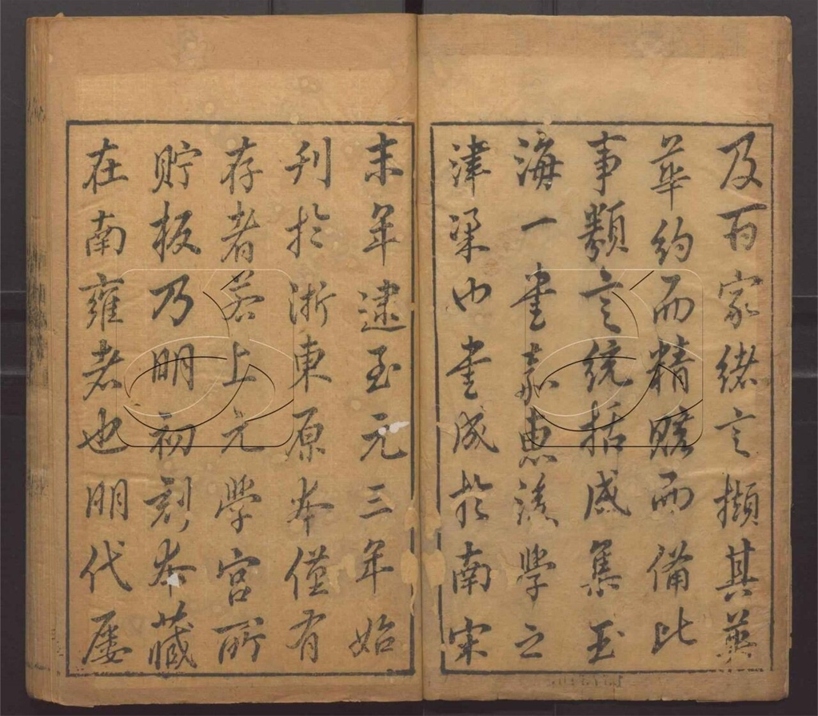 及百家緒言擷其英
華約而精贍而備此
事類之統括咸集玉
海一書嘉惠後學之
津梁也書成於南宋
末年逮至元三年始
刊於浙東原本僅有
存者若上元學宮所
貯板乃明初刻本藏
在南雍者也明代屡